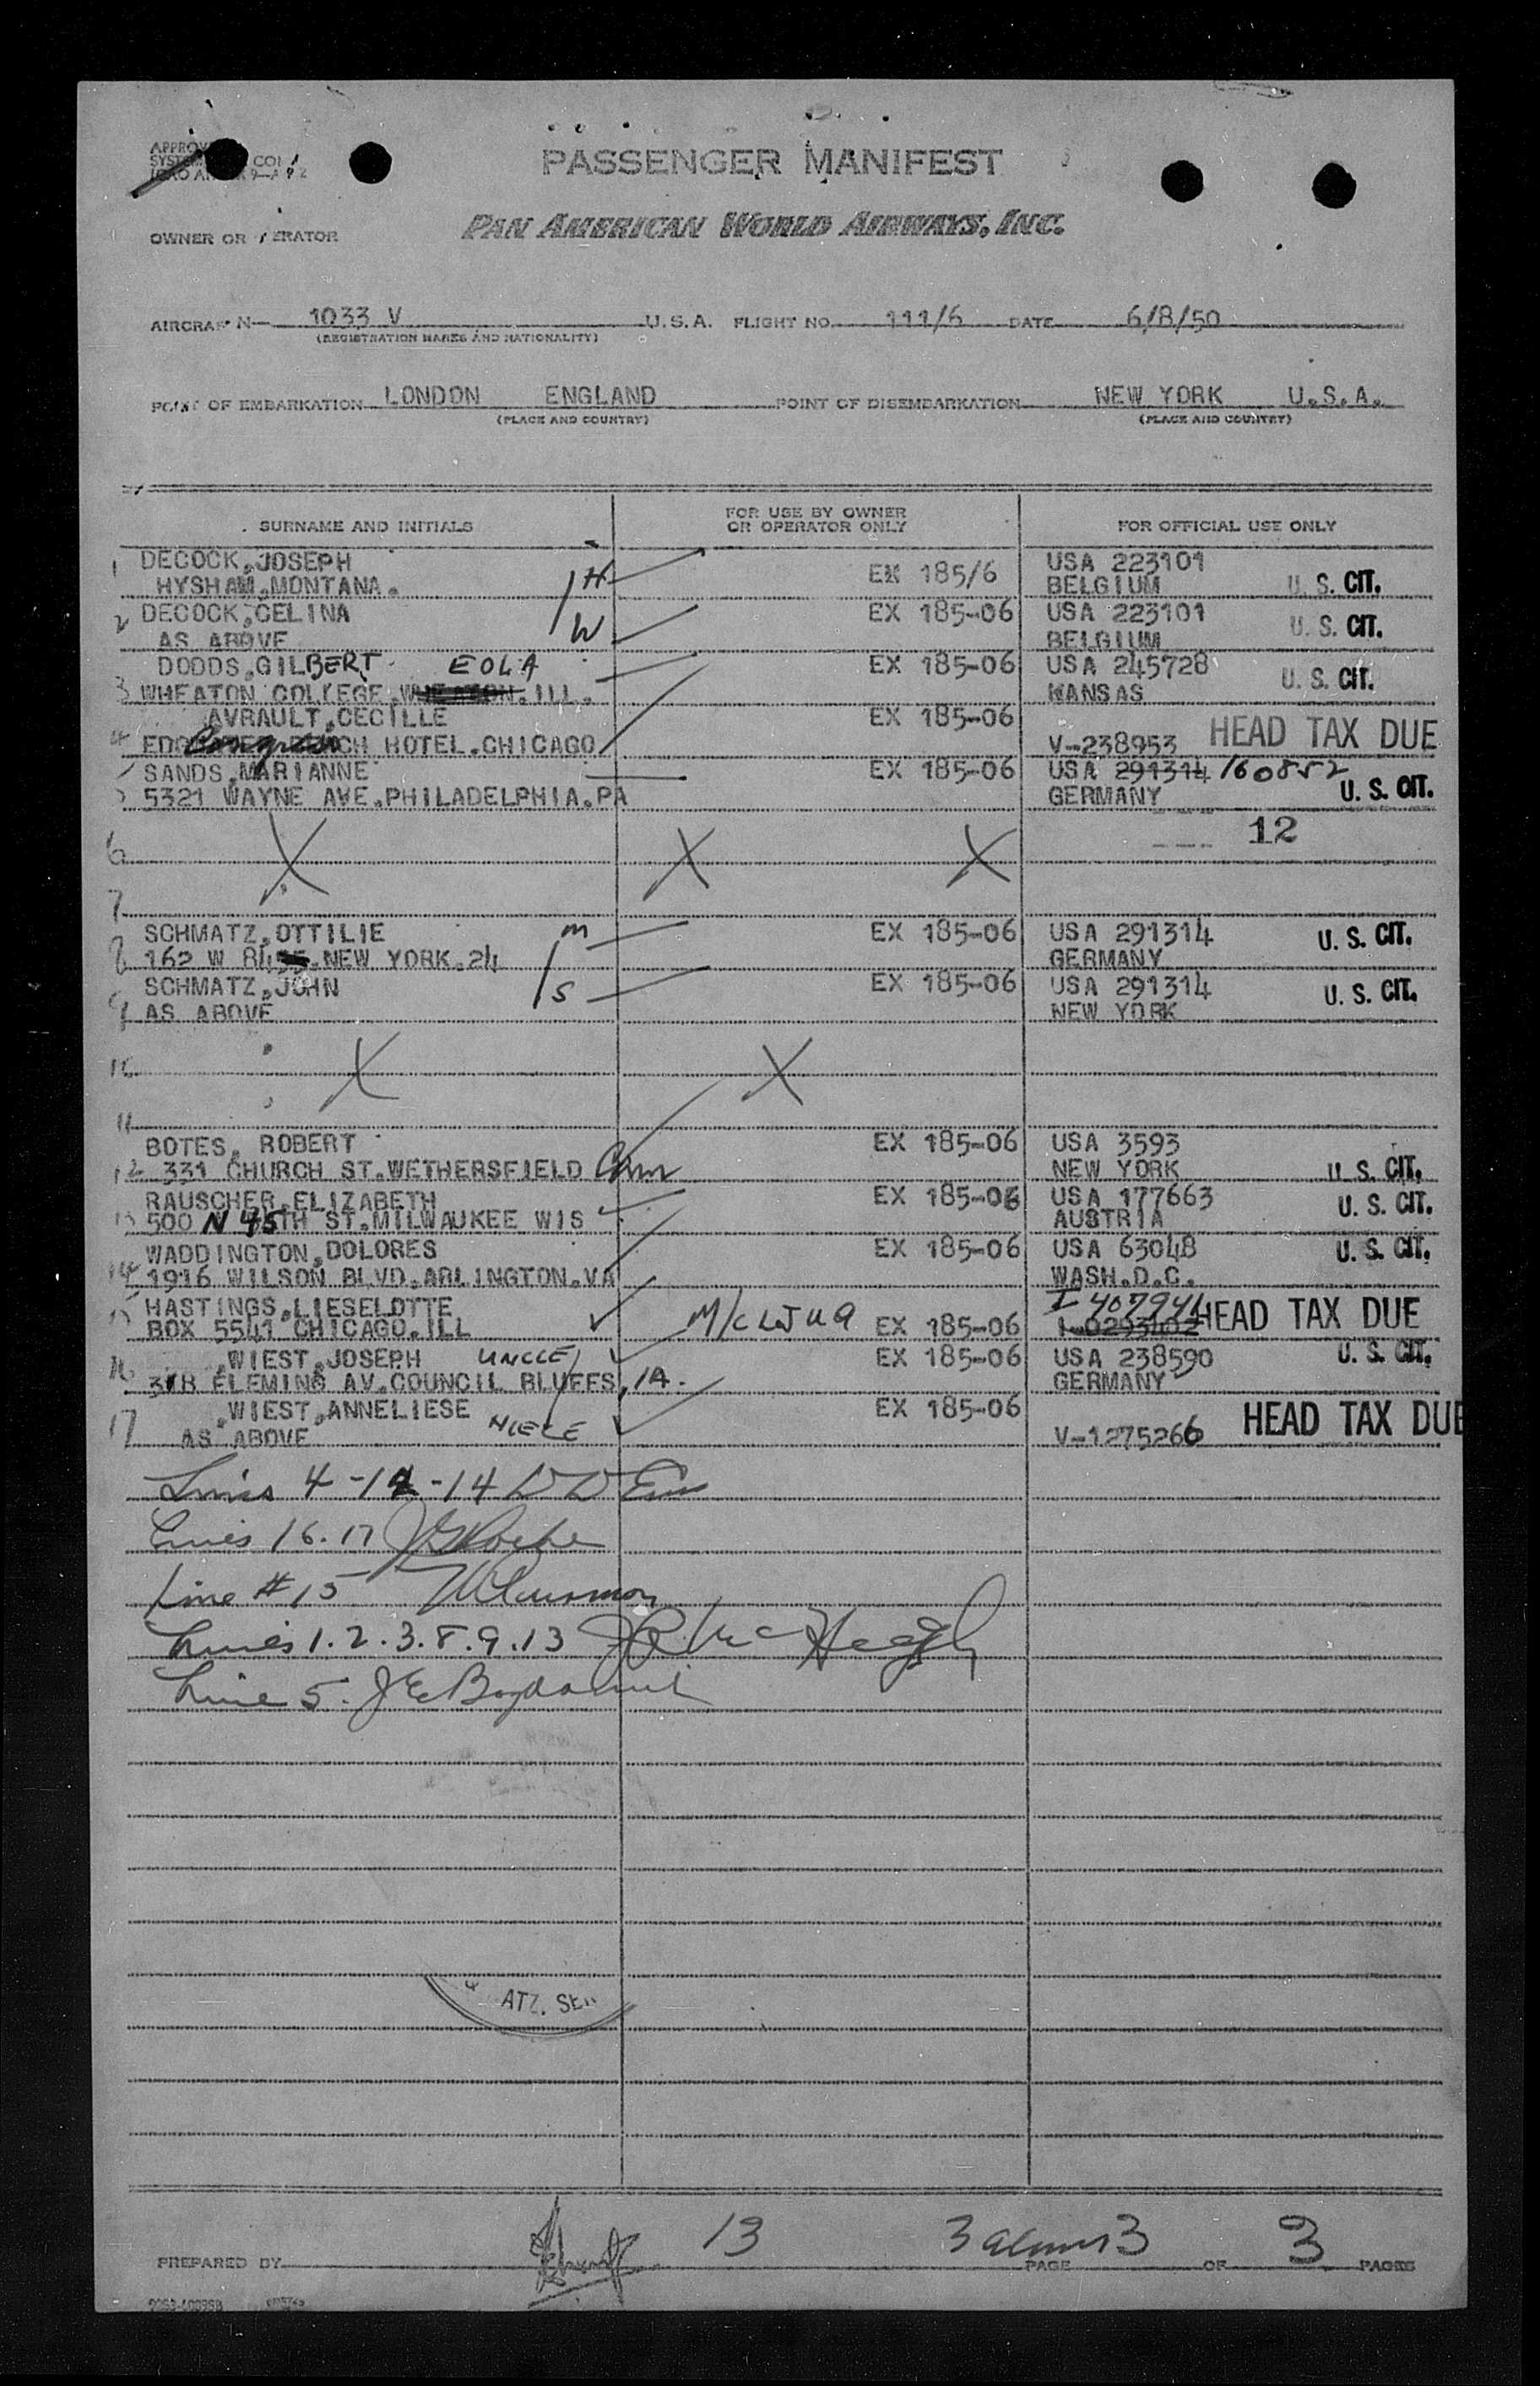 PASSENGER MANIFEST
OWNER OR
PAN AMERICAN WORLD AIRWAYS, INC.
AIRCRAFT N— 1033 V U.S.A. FLIGHT NO. 111/6 DATE 6/8/50
(REGISTRATION MARKS AND NATIONALITY)
POINT OF EMBARKATION LONDON ENGLAND POINT OF DISEMBARKATION NEW YORK U.S.A.
(PLACE AND COUNTRY) (PLACE AND COUNTRY)
SURNAME AND INITIALS FOR USE BY OWNER OR OPERATOR ONLY FOR OFFICIAL USE ONLY
1 DECOCK,JOSEPH H EX 185/6 USA 223101
HYSHAM,MONTANA. BELGIUM U. S. CIT.
2 DECOCK,CELINA W EX 185-06 USA 223101
AS ABOVE BELGIUM U. S. CIT.
DODDS,GILBERT EOLA EX 185-06 USA 245728
3 WHEATON COLLEGE ILL. KANSAS U. S. CIT.
AVRAULT,CECILLE EX 185-06
4 Congress HOTEL.CHICAGO V-238953 HEAD TAX DUE
SANDS,MARIANNE EX 185-06 USA 291314 160852
5 5321 WAYNE AVE.PHILADELPHIA.PA GERMANY U. S. CIT.
12
6 X X X
7
SCHMATZ,OTTILIE M EX 185-06 USA 291314 U. S. CIT.
8 162 W 84 NEW YORK.24 GERMANY
SCHMATZ,JOHN S EX 185-06 USA 291314 U. S. CIT.
9 AS ABOVE NEW YORK
10 X X
11
BOTES, ROBERT EX 185-06 USA 3593
12 331 CHURCH ST.WETHERSFIELD Conn NEW YORK U. S. CIT.
RAUSCHER,ELIZABETH EX 185-06 USA 177663 U. S. CIT.
13 500 N 45TH ST.MILWAUKEE WIS AUSTRIA
WADDINGTON,DOLORES EX 185-06 USA 63048 U. S. CIT.
14 1916 WILSON BLVD.ARLINGTON.VA WASH.D.C.
15 HASTINGS,LIESELOTTE I 407941
BOX 5541 CHICAGO.ILL EX 185-06 HEAD TAX DUE
WIEST,JOSEPH UNCLE EX 185-06 USA 238590 U. S. CIT.
16 FLEMING AV.COUNCIL BLUFFS, IA. GERMANY
WIEST,ANNELIESE NIECE EX 185-06
17 AS ABOVE V-1275266 HEAD TAX DUE
Lines 4 -12 -14
Lines 16.17
Line #15
Lines 1.2.3.8.9.13
Line 5.
ATZ. SE
13 3 aliens
PREPARED BY PAGE 3 OF 3 PAGES